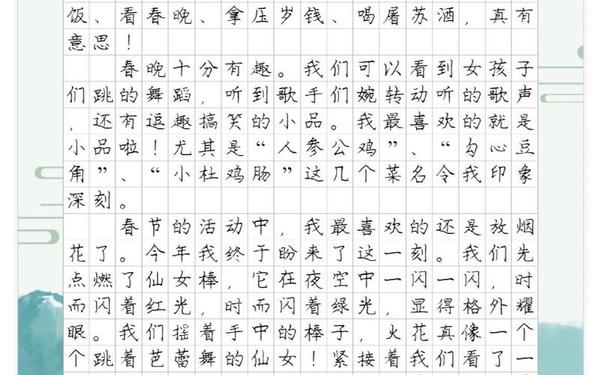 饭、看春晚、拿压岁钱、喝屠苏酒，真有
意思！
春晚十分有趣。我们可以看到女孩子
们跳的舞蹈，听到歌手们婉转动听的歌声
，还有逗趣搞笑的小品。我最喜欢的就是
小品啦！尤其是“人参公鸡”、“勾心豆
角”、“小杜鸡肠”这几个菜名令我印象
深刻。
春节的活动中，我最喜欢的还是放烟
花了。今年我终于盼来了这一刻。我们先
点燃了仙女棒，它在夜空中一闪一闪，时
而闪着红光，时而闪着绿光，显得格外耀
眼。我们摇着手中的棒子，火花真像一个
个跳着芭蕾舞的仙女！紧接着我们看了一